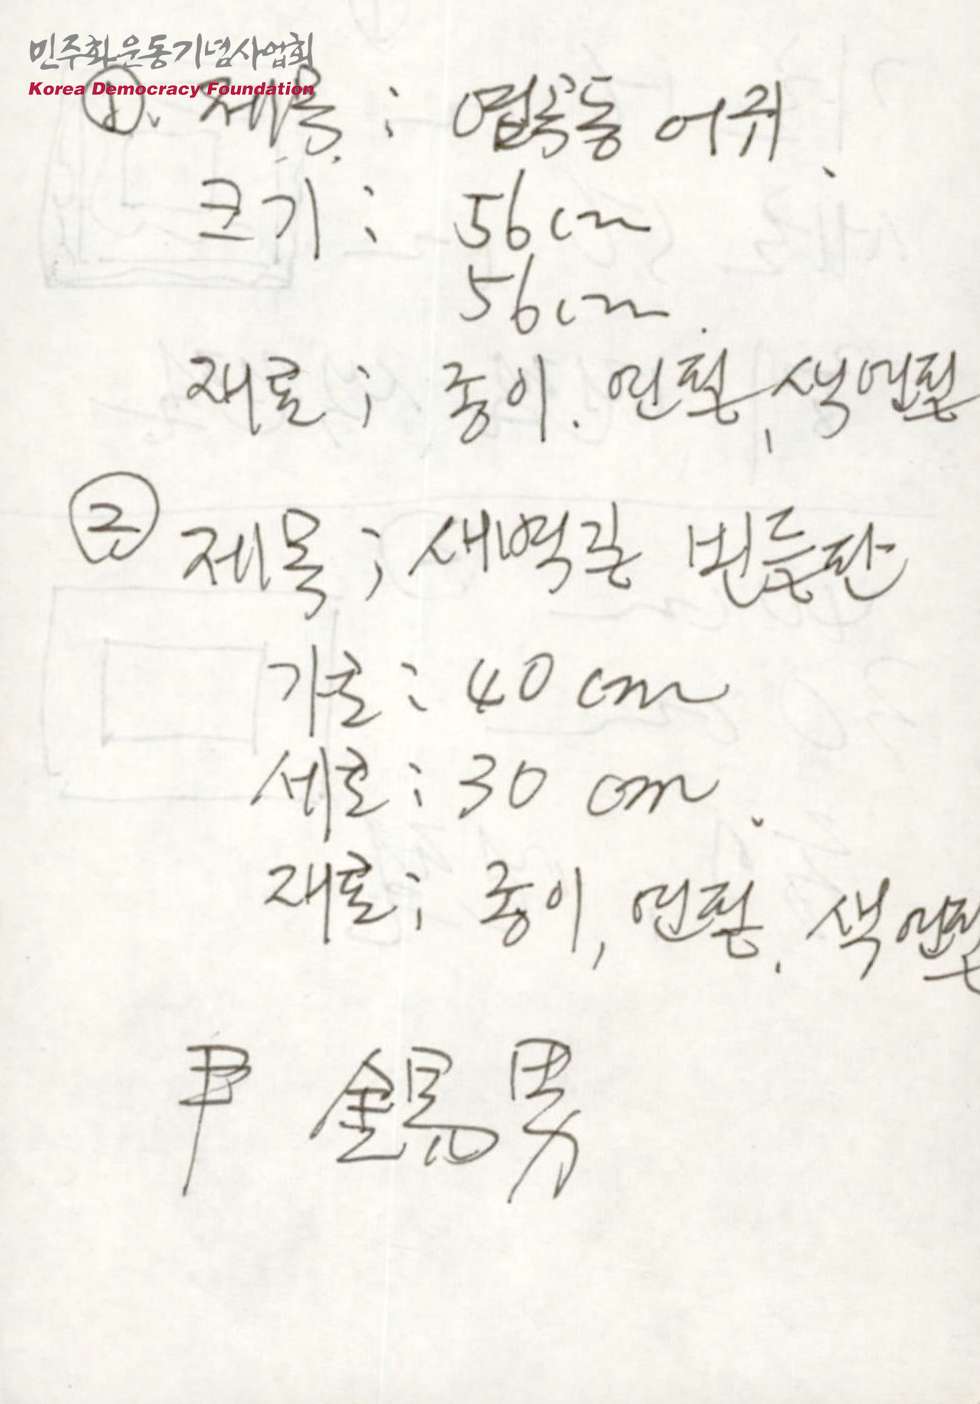 민주화운동기념사업회
Korea Democracy Foundation
①. 제목 : 염곡동 어귀.
크기 : 56cm
56cm.
재료 ; 종이. 연필, 색연필
② 제목 ; 새벽길 번듬판
가로 : 40 cm
세로 : 30 cm.
재료 ; 종이, 연필. 색연필
尹 錫男